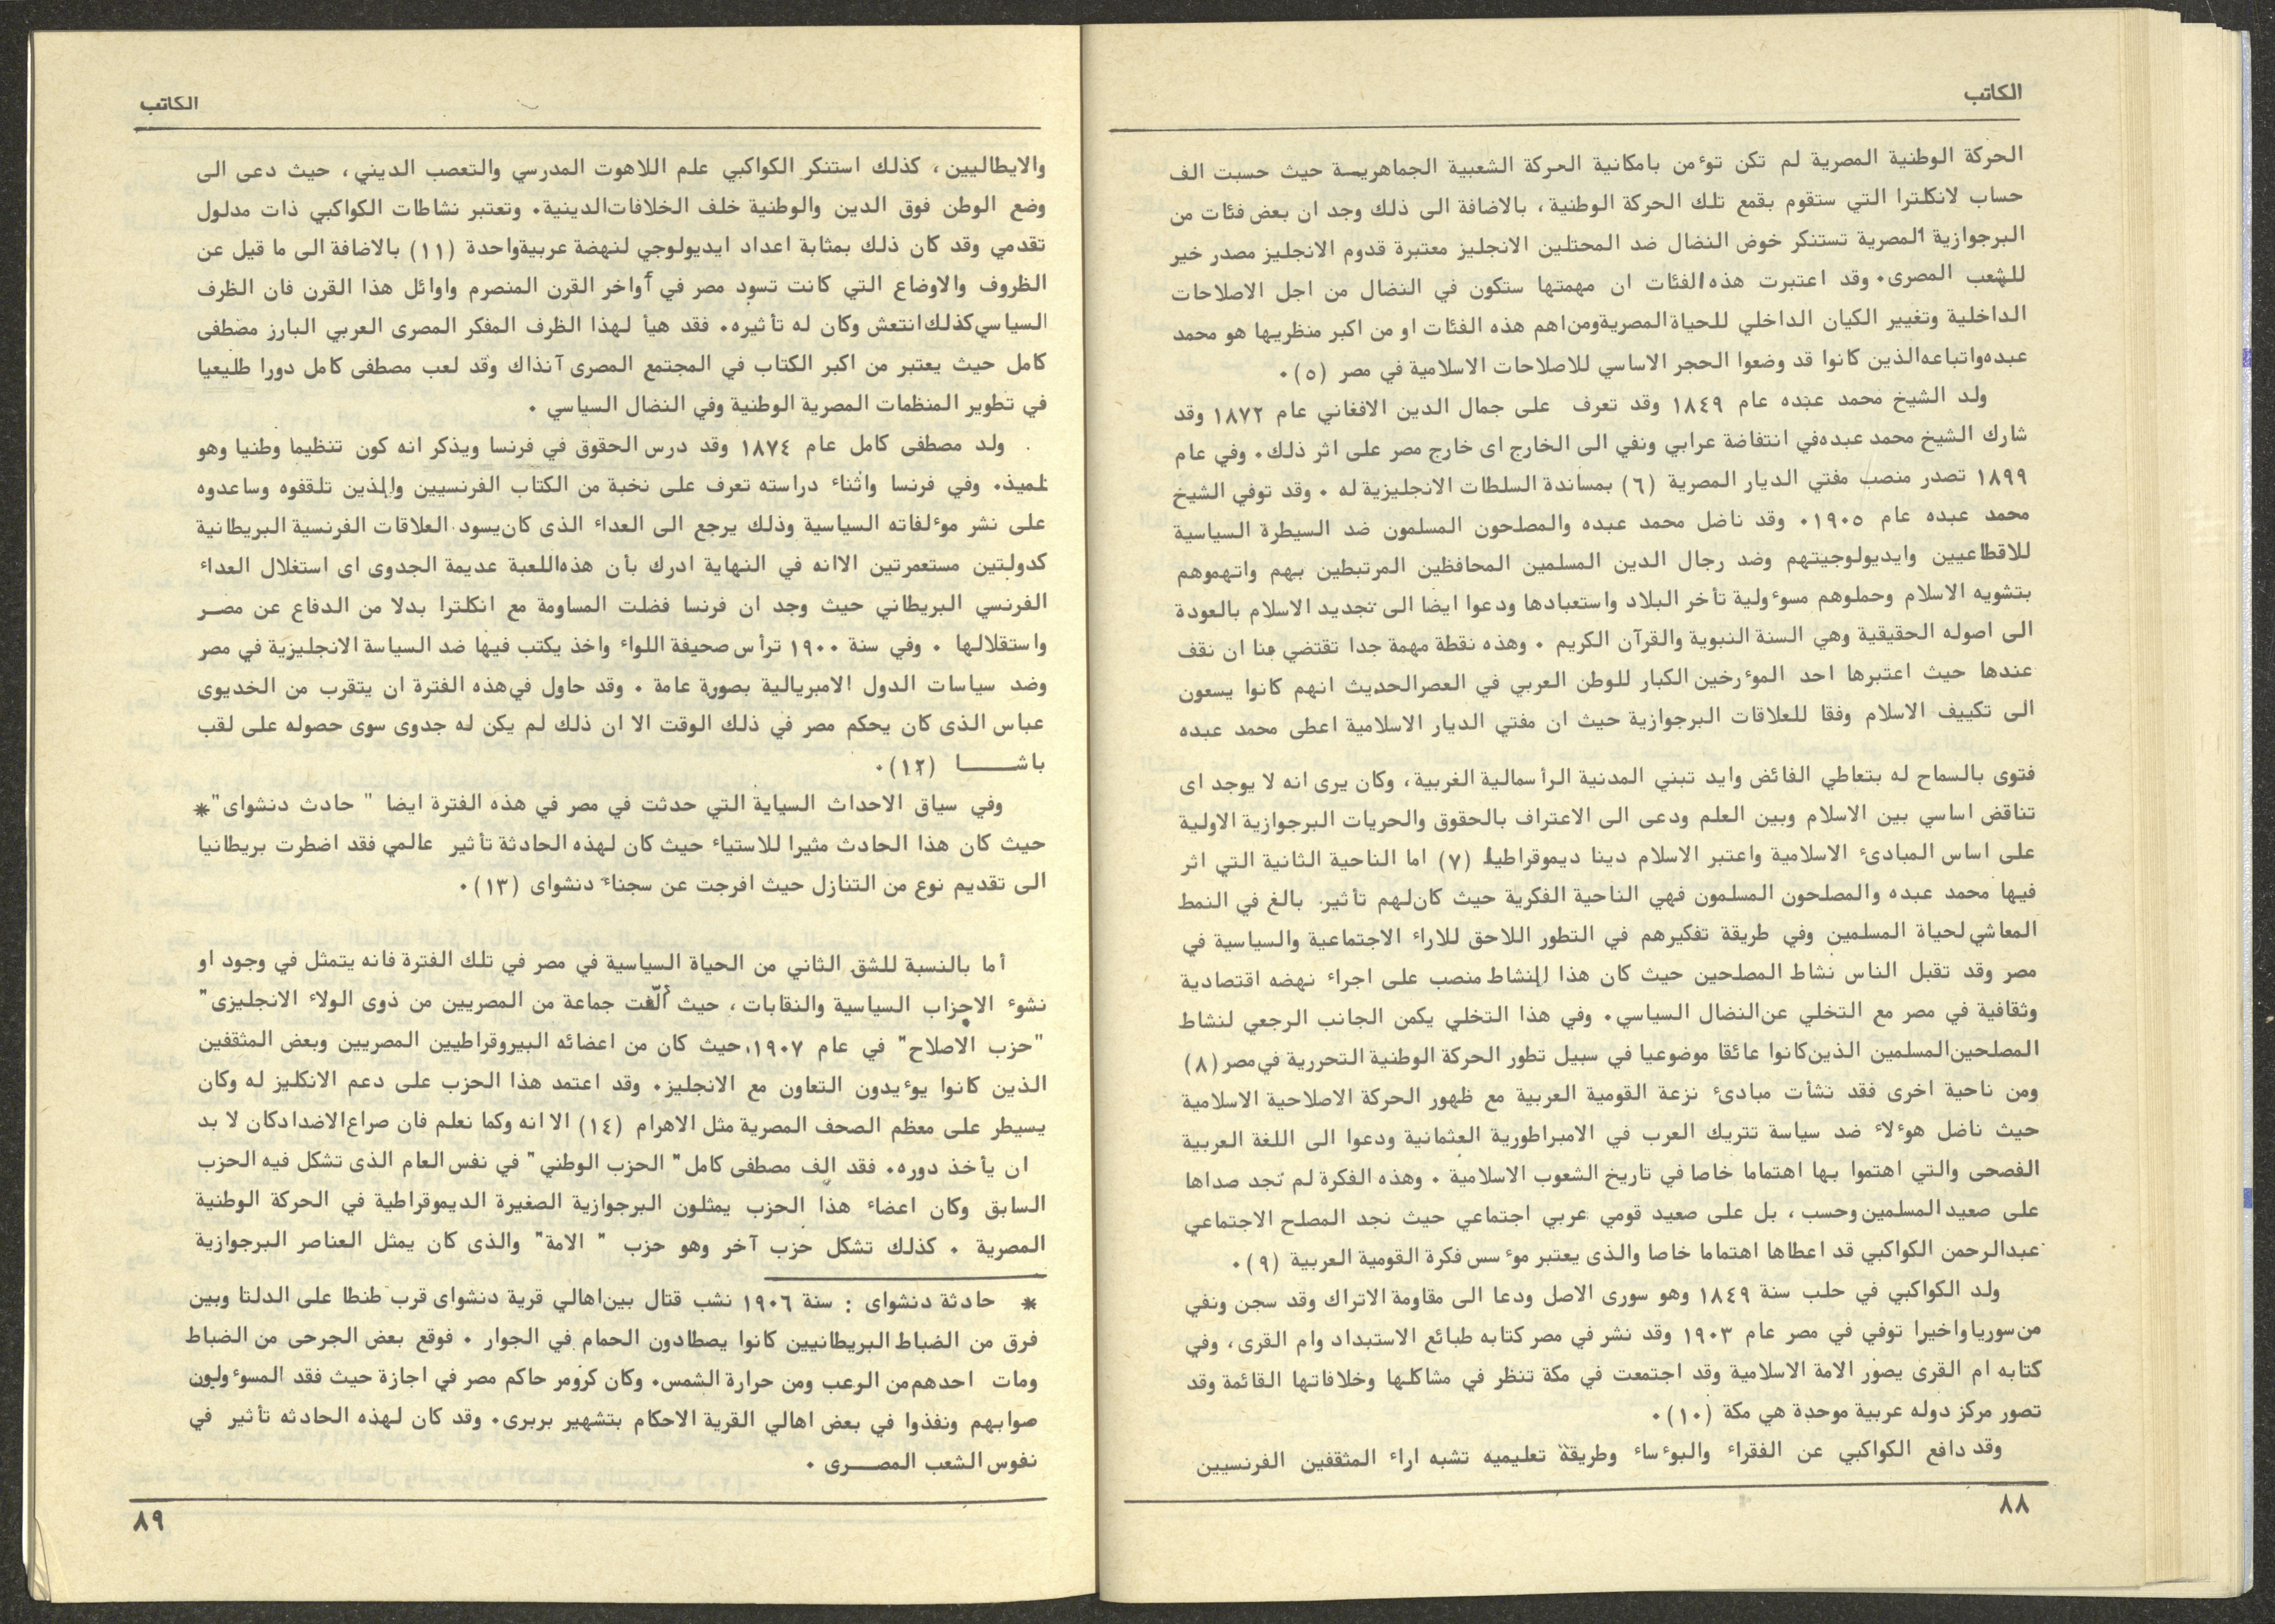 الكاتب
الحركة الوطنية المصرية لم تكن توءمن بامكانية الحركة الشعبية الجماهريـة حيث حسبت الف
حساب لانكلترا التي ستقوم بقمع تلك الحركة الوطنية، بالاضافة الى ذلك وجد ان بعض فئات من
البرجوازية المصرية تستنكر خوض النضال ضد المحتلين الانجليز معتبرة قدوم الانجليز مصدر خير
للشعب المصرى٠ وقد اعتبرت هذه الفئات ان مهمتها ستكون في النضال من اجل الاصلاحات
الداخلية وتغيير الكيان الداخلي للحياة المصرية ومن اهم هذه الفئات او من اكبر منظريها هو محمد
عبده واتباعه الذين كانوا قد وضعوا الحجر الاساسي للاصلاحات الاسلامية في مصر (٥)٠
ولد الشيخ محمد عبده عام ١٨٤٩ وقد تعرف على جمال الدين الافغاني عام ١٨٧٢ وقد
شارك الشيخ محمد عبده في انتفاضة عرابي ونفي الى الخارج اى خارج مصر على اثر ذلك٠ وفي عام
١٨٩٩ تصدر منصب مفتي الديار المصرية (٦) بمساندة السلطات الانجليزية له ٠ وقد توفي الشيخ
محمد عبده عام ١٩٠٥٠ وقد ناضل محمد عبده والمصلحون المسلمون ضد السيطرة السياسية
للاقطاعيين وايديولوجيتهم وضد رجال الدين المسلمين المحافظين المرتبطين بهم واتهموهم
بتشويه الاسلام وحملوهم مسوءولية تأخر البلاد واستعبادها ودعوا ايضا الى تجديد الاسلام بالعودة
الى اصوله الحقيقية وهي السنة النبوية والقرآن الكريم ٠ وهذه نقطة مهمة جدا تقتضي منا ان نقف
عندها حيث اعتبرها احد الموءرخين الكبار للوطن العربي في العصر الحديث انهم كانوا يسعون
الى تكييف الاسلام وفقا للعلاقات البرجوازية حيث ان مفتي الديار الاسلامية اعطى محمد عبده
فتوى بالسماح له بتعاطي الفائض وايد تبني المدنية الرأسمالية الغربية، وكان يرى انه لا يوجد اى
تناقض اساسي بين الاسلام وبين العلم ودعى الى الاعتراف بالحقوق والحريات البرجوازية الاولية
على اساس المبادىء الاسلامية واعتبر الاسلام دينا ديموقراطيا (٧) اما الناحية الثانية التي اثر
فيها محمد عبده والمصلحون المسلمون فهي الناحية الفكرية حيث كان لهم تأثير بالغ في النمط
المعاشي لحياة المسلمين وفي طريقة تفكيرهم في التطور اللاحق للاراء الاجتماعية والسياسية في
مصر وقد تقبل الناس نشاط المصلحين حيث كان هذا النشاط منصب على اجراء نهضه اقتصادية
وثقافية في مصر مع التخلي عن النضال السياسي٠ وفي هذا التخلي يكمن الجانب الرجعي لنشاط
المصلحين المسلمين الذين كانوا عائقا موضوعيا في سبيل تطور الحركة الوطنية التحررية في مصر (٨)
ومن ناحية اخرى فقد نشأت مبادىء نزعة القومية العربية مع ظهور الحركة الاصلاحية الاسلامية
حيث ناضل هوءلاء ضد سياسة تتريك العرب في الامبراطورية العثمانية ودعوا الى اللغة العربية
الفصحى والتي اهتموا بها اهتماما خاصا في تاريخ الشعوب الاسلامية ٠ وهذه الفكرة لم تجد صداها
على صعيد المسلمين وحسب، بل على صعيد قومي عربي اجتماعي حيث نجد المصلح الاجتماعي
عبدالرحمن الكواكبي قد اعطاها اهتماما خاصا والذى يعتبر موءسس فكرة القومية العربية (٩)٠
ولد الكواكبي في حلب سنة ١٨٤٩ وهو سورى الاصل ودعا الى مقاومة الاتراك وقد سجن ونفي
من سوريا واخيرا توفي في مصر عام ١٩٠٣ وقد نشر في مصر كتابه طبائع الاستبداد وام القرى، وفي
كتابه ام القرى يصور الامة الاسلامية وقد اجتمعت في مكة تنظر في مشاكلها وخلافاتها القائمة وقد
تصور مركز دوله عربية موحدة هي مكة (١٠)٠
وقد دافع الكواكبي عن الفقراء والبوءساء وطريقة تعليميه تشبه اراء المثقفين الفرنسيين
٨٨
الكاتب
والايطاليين، كذلك استنكر الكواكبي علم اللاهوت المدرسي والتعصب الديني، حيث دعى الى
وضع الوطن فوق الدين والوطنية خلف الخلافات الدينية٠ وتعتبر نشاطات الكواكبي ذات مدلول
تقدمي وقد كان ذلك بمثابة اعداد ايديولوجي لنهضة عربية واحدة (١١) بالاضافة الى ما قيل عن
الظروف والاوضاع التي كانت تسود مصر في أواخر القرن المنصرم واوائل هذا القرن فان الظرف
السياسي كذلك انتعش وكان له تأثيره٠ فقد هيأ لهذا الظرف المفكر المصرى العربي البارز مصطفى
كامل حيث يعتبر من اكبر الكتاب في المجتمع المصرى آنذاك وقد لعب مصطفى كامل دورا طليعيا
في تطوير المنظمات المصرية الوطنية وفي النضال السياسي ٠
ولد مصطفى كامل عام ١٨٧٤ وقد درس الحقوق في فرنسا ويذكر انه كون تنظيما وطنيا وهو
تلميذ٠ وفي فرنسا واثناء دراسته تعرف على نخبة من الكتاب الفرنسيين والذين تلقفوه وساعدوه
على نشر موءلفاته السياسية وذلك يرجع الى العداء الذى كان يسود العلاقات الفرنسية البريطانية
كدولتين مستعمرتين الا انه في النهاية ادرك بأن هذه اللعبة عديمة الجدوى اى استغلال العداء
الفرنسي البريطاني حيث وجد ان فرنسا فضلت المساومة مع انكلترا بدلا من الدفاع عن مصـر
واستقلالها ٠ وفي سنة ١٩٠٠ ترأس صحيفة اللواء واخذ يكتب فيها ضد السياسة الانجليزية في مصر
وضد سياسات الدول الامبريالية بصورة عامة ٠ وقد حاول في هذه الفترة ان يتقرب من الخديوى
عباس الذى كان يحكم مصر في ذلك الوقت الا ان ذلك لم يكن له جدوى سوى حصوله على لقب
باشــــا (١٢)٠
وفي سياق الاحداث السياية التي حدثت في مصر في هذه الفترة ايضا " حادث دنشواى"*
حيث كان هذا الحادث مثيرا للاستياء حيث كان لهذه الحادثة تأثير عالمي فقد اضطرت بريطانيا
الى تقديم نوع من التنازل حيث افرجت عن سجناء دنشواى (١٣)٠
أما بالنسبة للشق الثاني من الحياة السياسية في مصر في تلك الفترة فانه يتمثل في وجود او
نشوء الاحزاب السياسية والنقابات، حيث ألّفت جماعة من المصريين من ذوى الولاء الانجليزى"
"حزب الاصلاح" في عام ١٩٠٧، حيث كان من اعضائه البيروقراطيين المصريين وبعض المثقفين
الذين كانوا يوءيدون التعاون مع الانجليز٠ وقد اعتمد هذا الحزب على دعم الانكليز له وكان
يسيطر على معظم الصحف المصرية مثل الاهرام (١٤) الا انه وكما نعلم فان صراع الاضداد كان لا بد
ان يأخذ دوره٠ فقد الف مصطفى كامل" الحزب الوطني" في نفس العام الذى تشكل فيه الحزب
السابق وكان اعضاء هذا الحزب يمثلون البرجوازية الصغيرة الديموقراطية في الحركة الوطنية
المصرية ٠ كذلك تشكل حزب آخر وهو حزب " الامة" والذى كان يمثل العناصر البرجوازية
* حادثة دنشواى : سنة ١٩٠٦ نشب قتال بين اهالي قرية دنشواى قرب طنطا على الدلتا وبين
فرق من الضباط البريطانيين كانوا يصطادون الحمام في الجوار ٠ فوقع بعض الجرحى من الضباط
ومات احدهم من الرعب ومن حرارة الشمس٠ وكان كرومر حاكم مصر في اجازة حيث فقد المسوءولون
صوابهم ونفذوا في بعض اهالي القرية الاحكام بتشهير بربرى٠ وقد كان لهذه الحادثه تأثير في
نفوس الشعب المصــرى ٠
٨٩